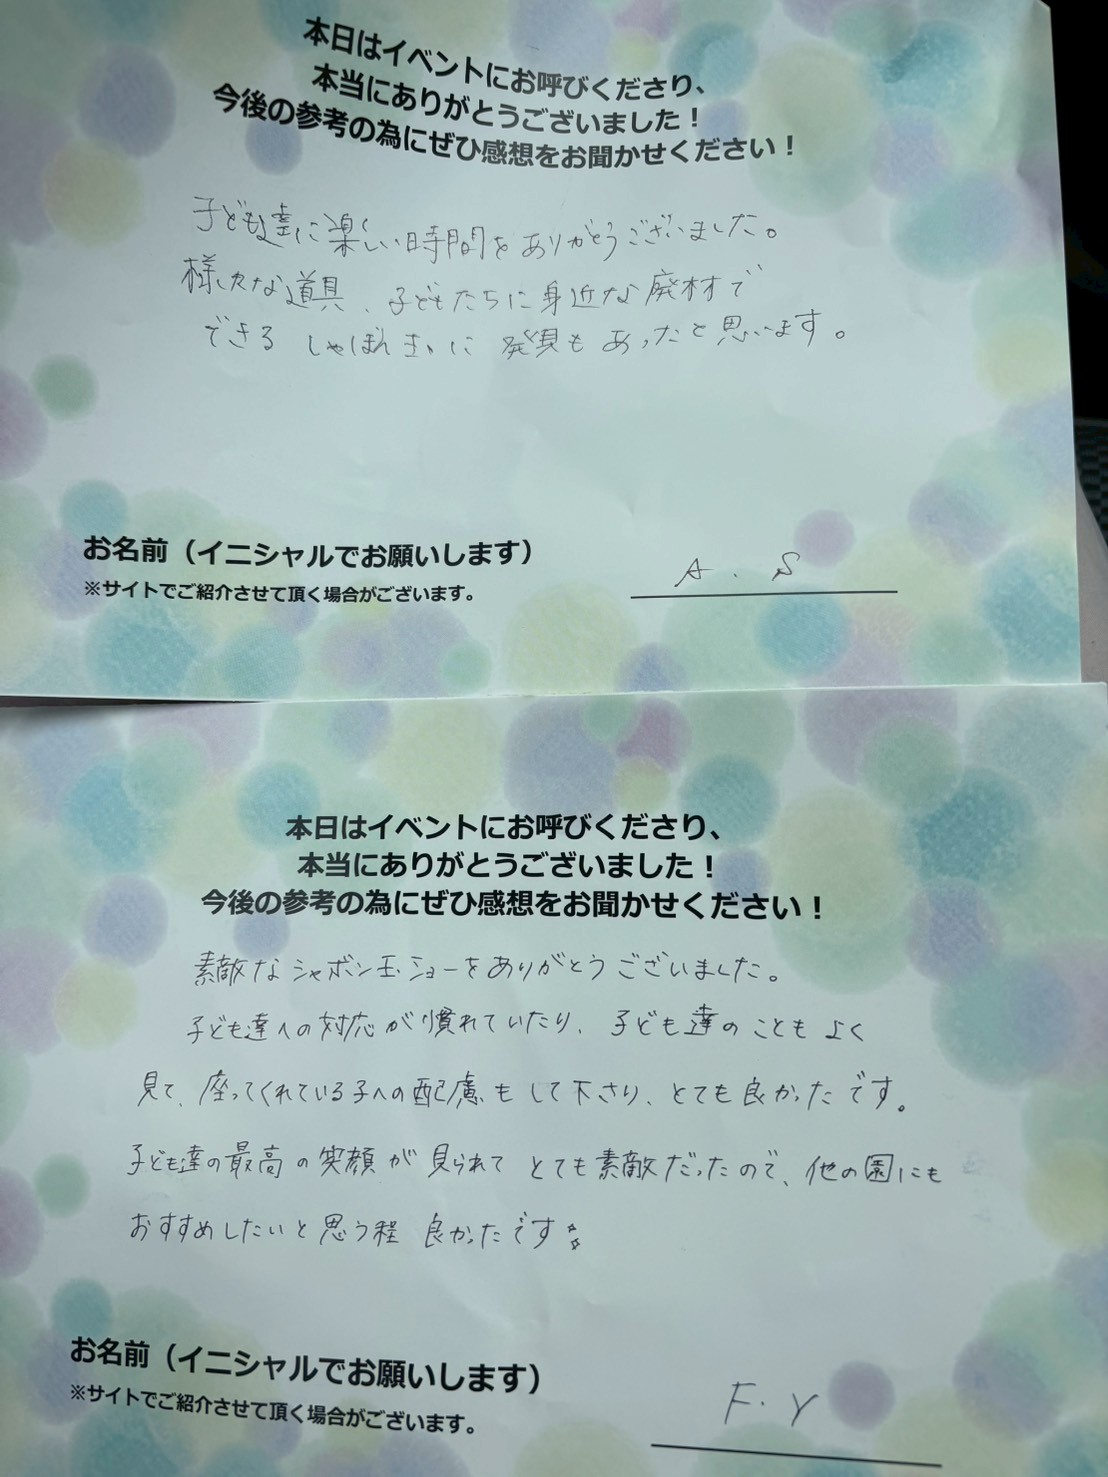 本日はイベントにお呼びくださり、
本当にありがとうございました！
今後の参考の為にぜひ感想をお聞かせください！
子ども達に楽しい時間をありがとうございました。
様々な道具、子どもたちに身近な廃材で
できる しゃぼん玉に 発見も あったと思います。
お名前（イニシャルでお願いします）
※サイトでご紹介させて頂く場合がございます。
A.S
本日はイベントにお呼びくださり、
本当にありがとうございました！
今後の参考の為にぜひ感想をお聞かせください！
素敵なシャボン玉ショーをありがとうございました。
子ども達への対応が慣れていたり、子ども達のこともよく
見て、座ってくれている子への配慮もして下さり、とても良かったです。
子ども達の最高の笑顔が見られてとても素敵だったので、他の園にも
おすすめしたいと思う程 良かったです
お名前（イニシャルでお願いします）
※サイトでご紹介させて頂く場合がございます。
F.Y